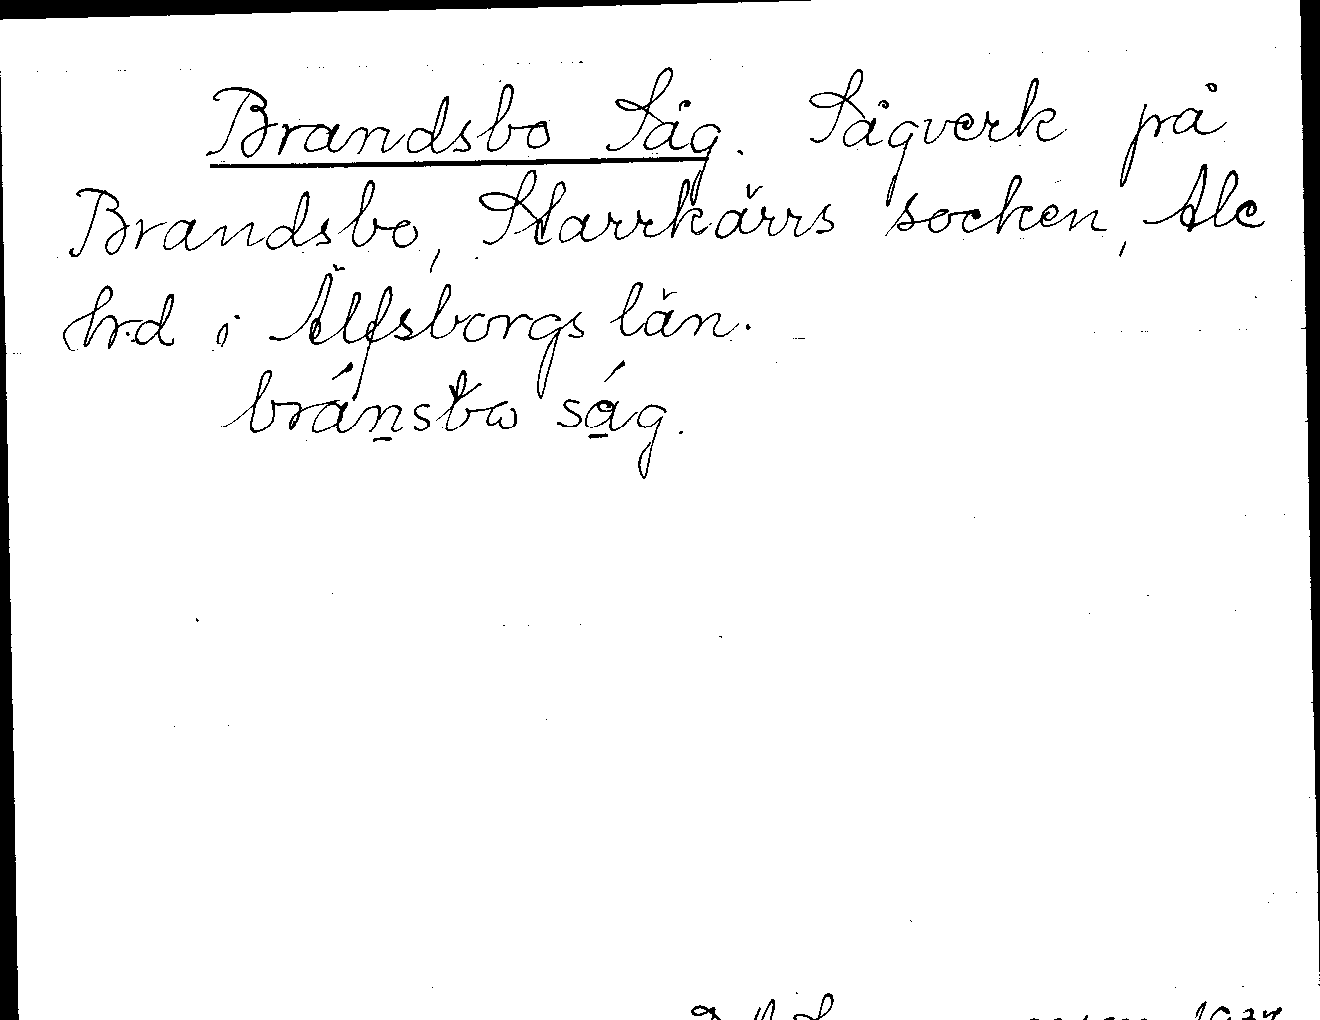 Brandsbo Såg. Sågverk på
Brandsbo, Starrkärrs socken, Ale
hrd i Älfsborgs län.
bránsbω ság.